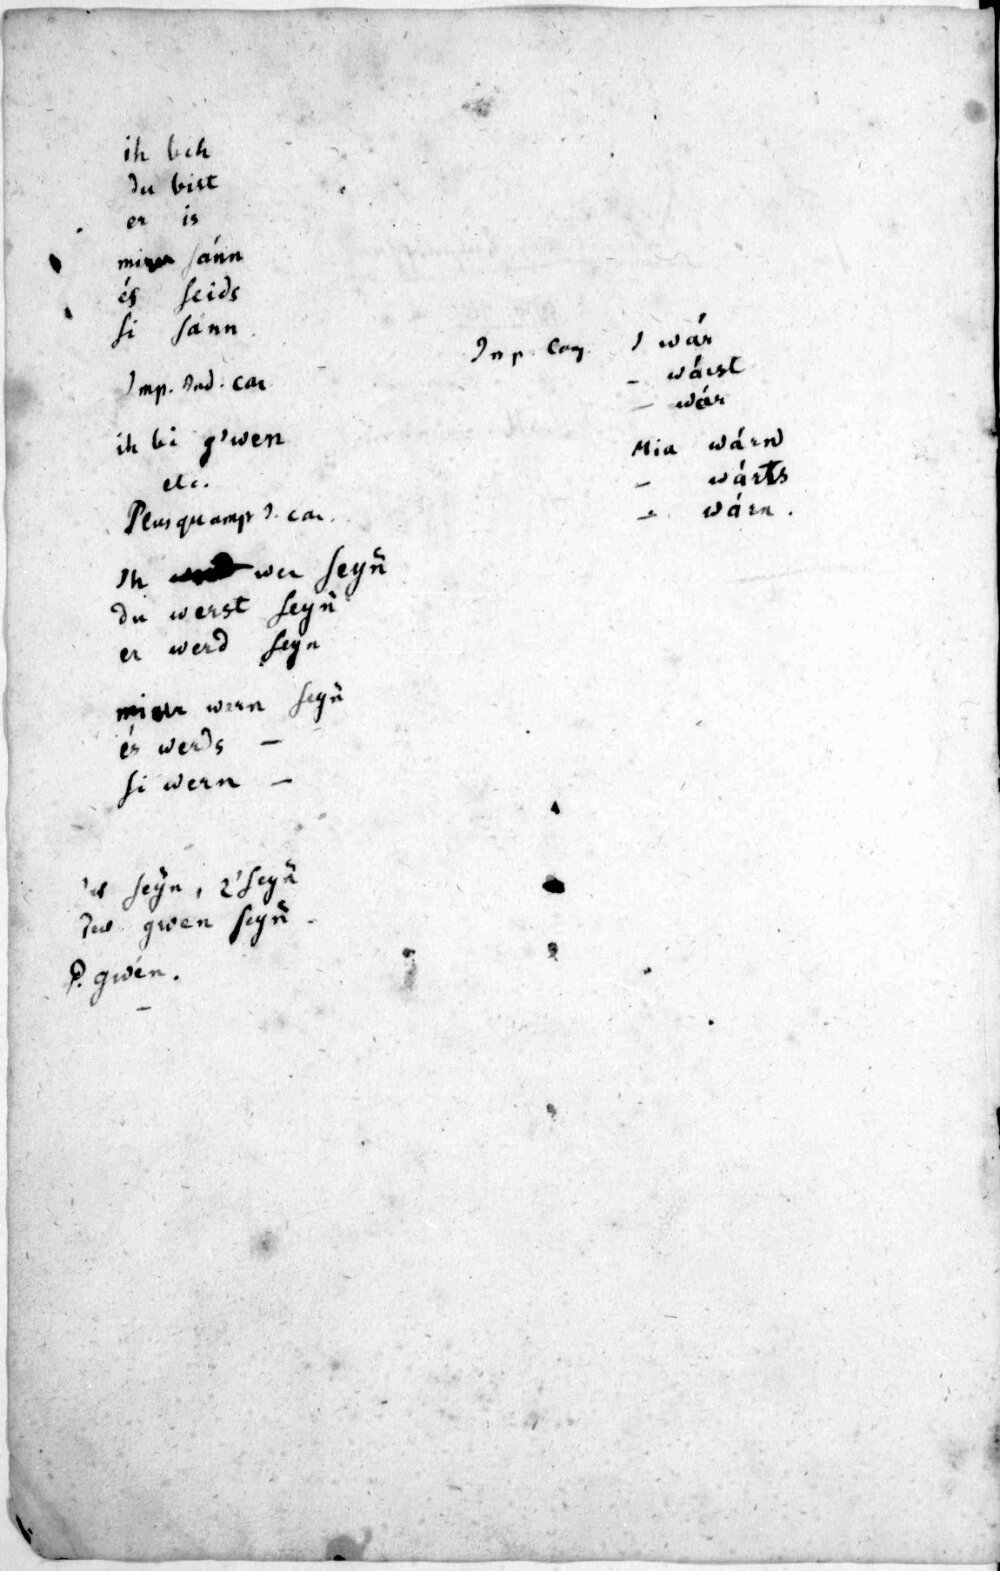 ih bih
du bist
er is
mier sánn
és seids
si sánn.
Imp. Ind. car
ih bi g'wen
etc.
Plusquamp I. car.
Ih wer seyn̄
du werst seyn̄
er werd seyn
mier wern seyn̄
és werds —
si wern —
seyn, z'seyn̄
gwen seyn̄.
P. gwén.
—
Imp. Conj. I wár
— wárst
— wár
Mia wárn
— wárts
— wárn.